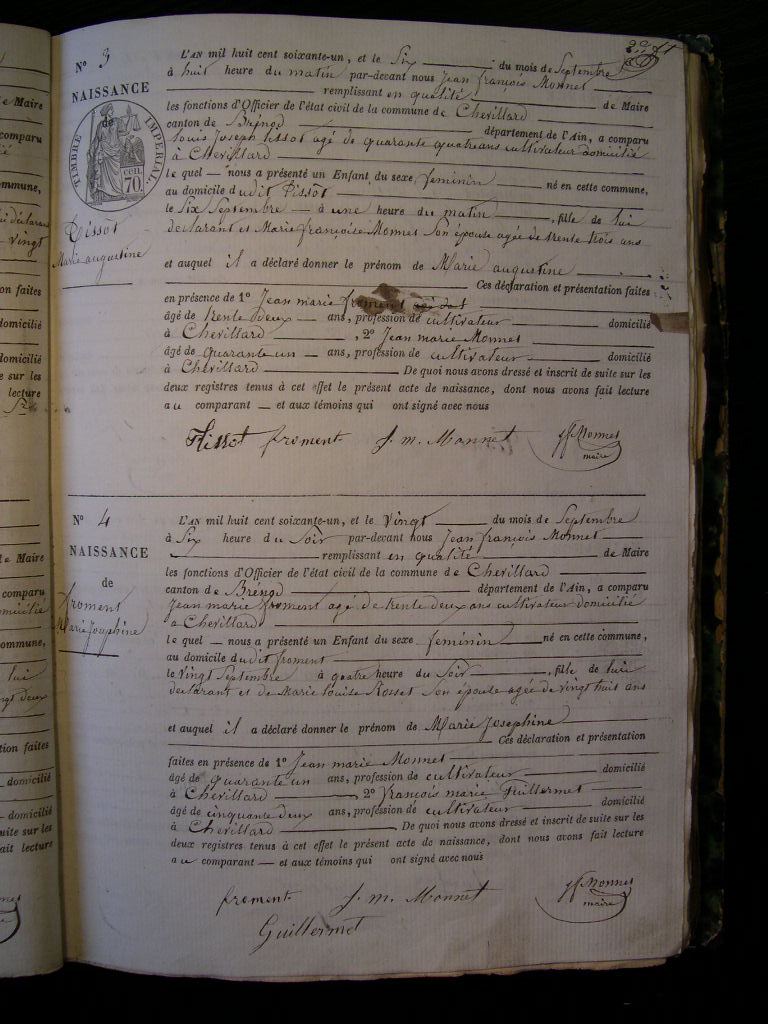 N° 3
NAISSANCE
de
TIMBRE IMPERIAL.
CEN.
70.
Tissot
Marie augustine
L'AN mil huit cent soixante-un, et le Six du mois de Septembre
à huit heure du matin par-devant nous Jean françois Monnet
remplissant en qualité de Maire
les fonctions d'Officier de l'état civil de la commune de Chevillard
canton de Brénod département de l'Ain, a comparu
Louis Joseph Tissot agé de quarante quatre ans cultivateur domicilié
à Chevillard
le quel nous a présenté un Enfant du sexe feminin né en cette commune,
au domicile dudit Tissot
le Six Septembre à une heure du matin, fille de lui
declarant et Marie françoise Monnet son épouse agée de trente trois ans
et auquel il a déclaré donner le prénom de Marie augustine
Ces déclaration et présentation faites
en présence de 1° Jean marie froment
âgé de trente deux ans, profession de cultivateur domicilié
à Chevillard, 2° Jean marie Monnet
âgé de quarante un ans, profession de cultivateur domicilié
à Chevillard De quoi nous avons dressé et inscrit de suite sur les
deux registres tenus à cet effet le présent acte de naissance, dont nous avons fait lecture
au comparant et aux témoins qui ont signé avec nous
Tissot froment J. m. Monnet Monnet
maire
N° 4
NAISSANCE
de
froment
Marie Josephine
L'AN mil huit cent soixante-un, et le vingt du mois de Septembre
à Six heure du Soir par-devant nous Jean françois Monnet
remplissant en qualité de Maire
les fonctions d'Officier de l'état civil de la commune de Chevillard
canton de Brénod département de l'Ain, a comparu
Jean marie froment agé de trente deux ans cultivateur domicilié
a Chevillard
le quel nous a présenté un Enfant du sexe feminin né en cette commune,
au domicile dudit froment
le vingt Septembre à quatre heure du Soir, fille de lui
declarant et de Marie Louise Rosset son épouse agée de vingt huit ans
et auquel il a déclaré donner le prénom de Marie Josephine
Ces déclaration et présentation
faites en présence de 1° Jean marie Monnet
âgé de quarante un ans, profession de cultivateur domicilié
à Chevillard, 2° françois marie Guillermet
âgé de cinquante deux ans, profession de cultivateur domicilié
à Chevillard De quoi nous avons dressé et inscrit de suite sur les
deux registres tenus à cet effet le présent acte de naissance, dont nous avons fait lecture
au comparant et aux témoins qui ont signé avec nous
froment J. m. Monnet Monnet
maire
Guillermet